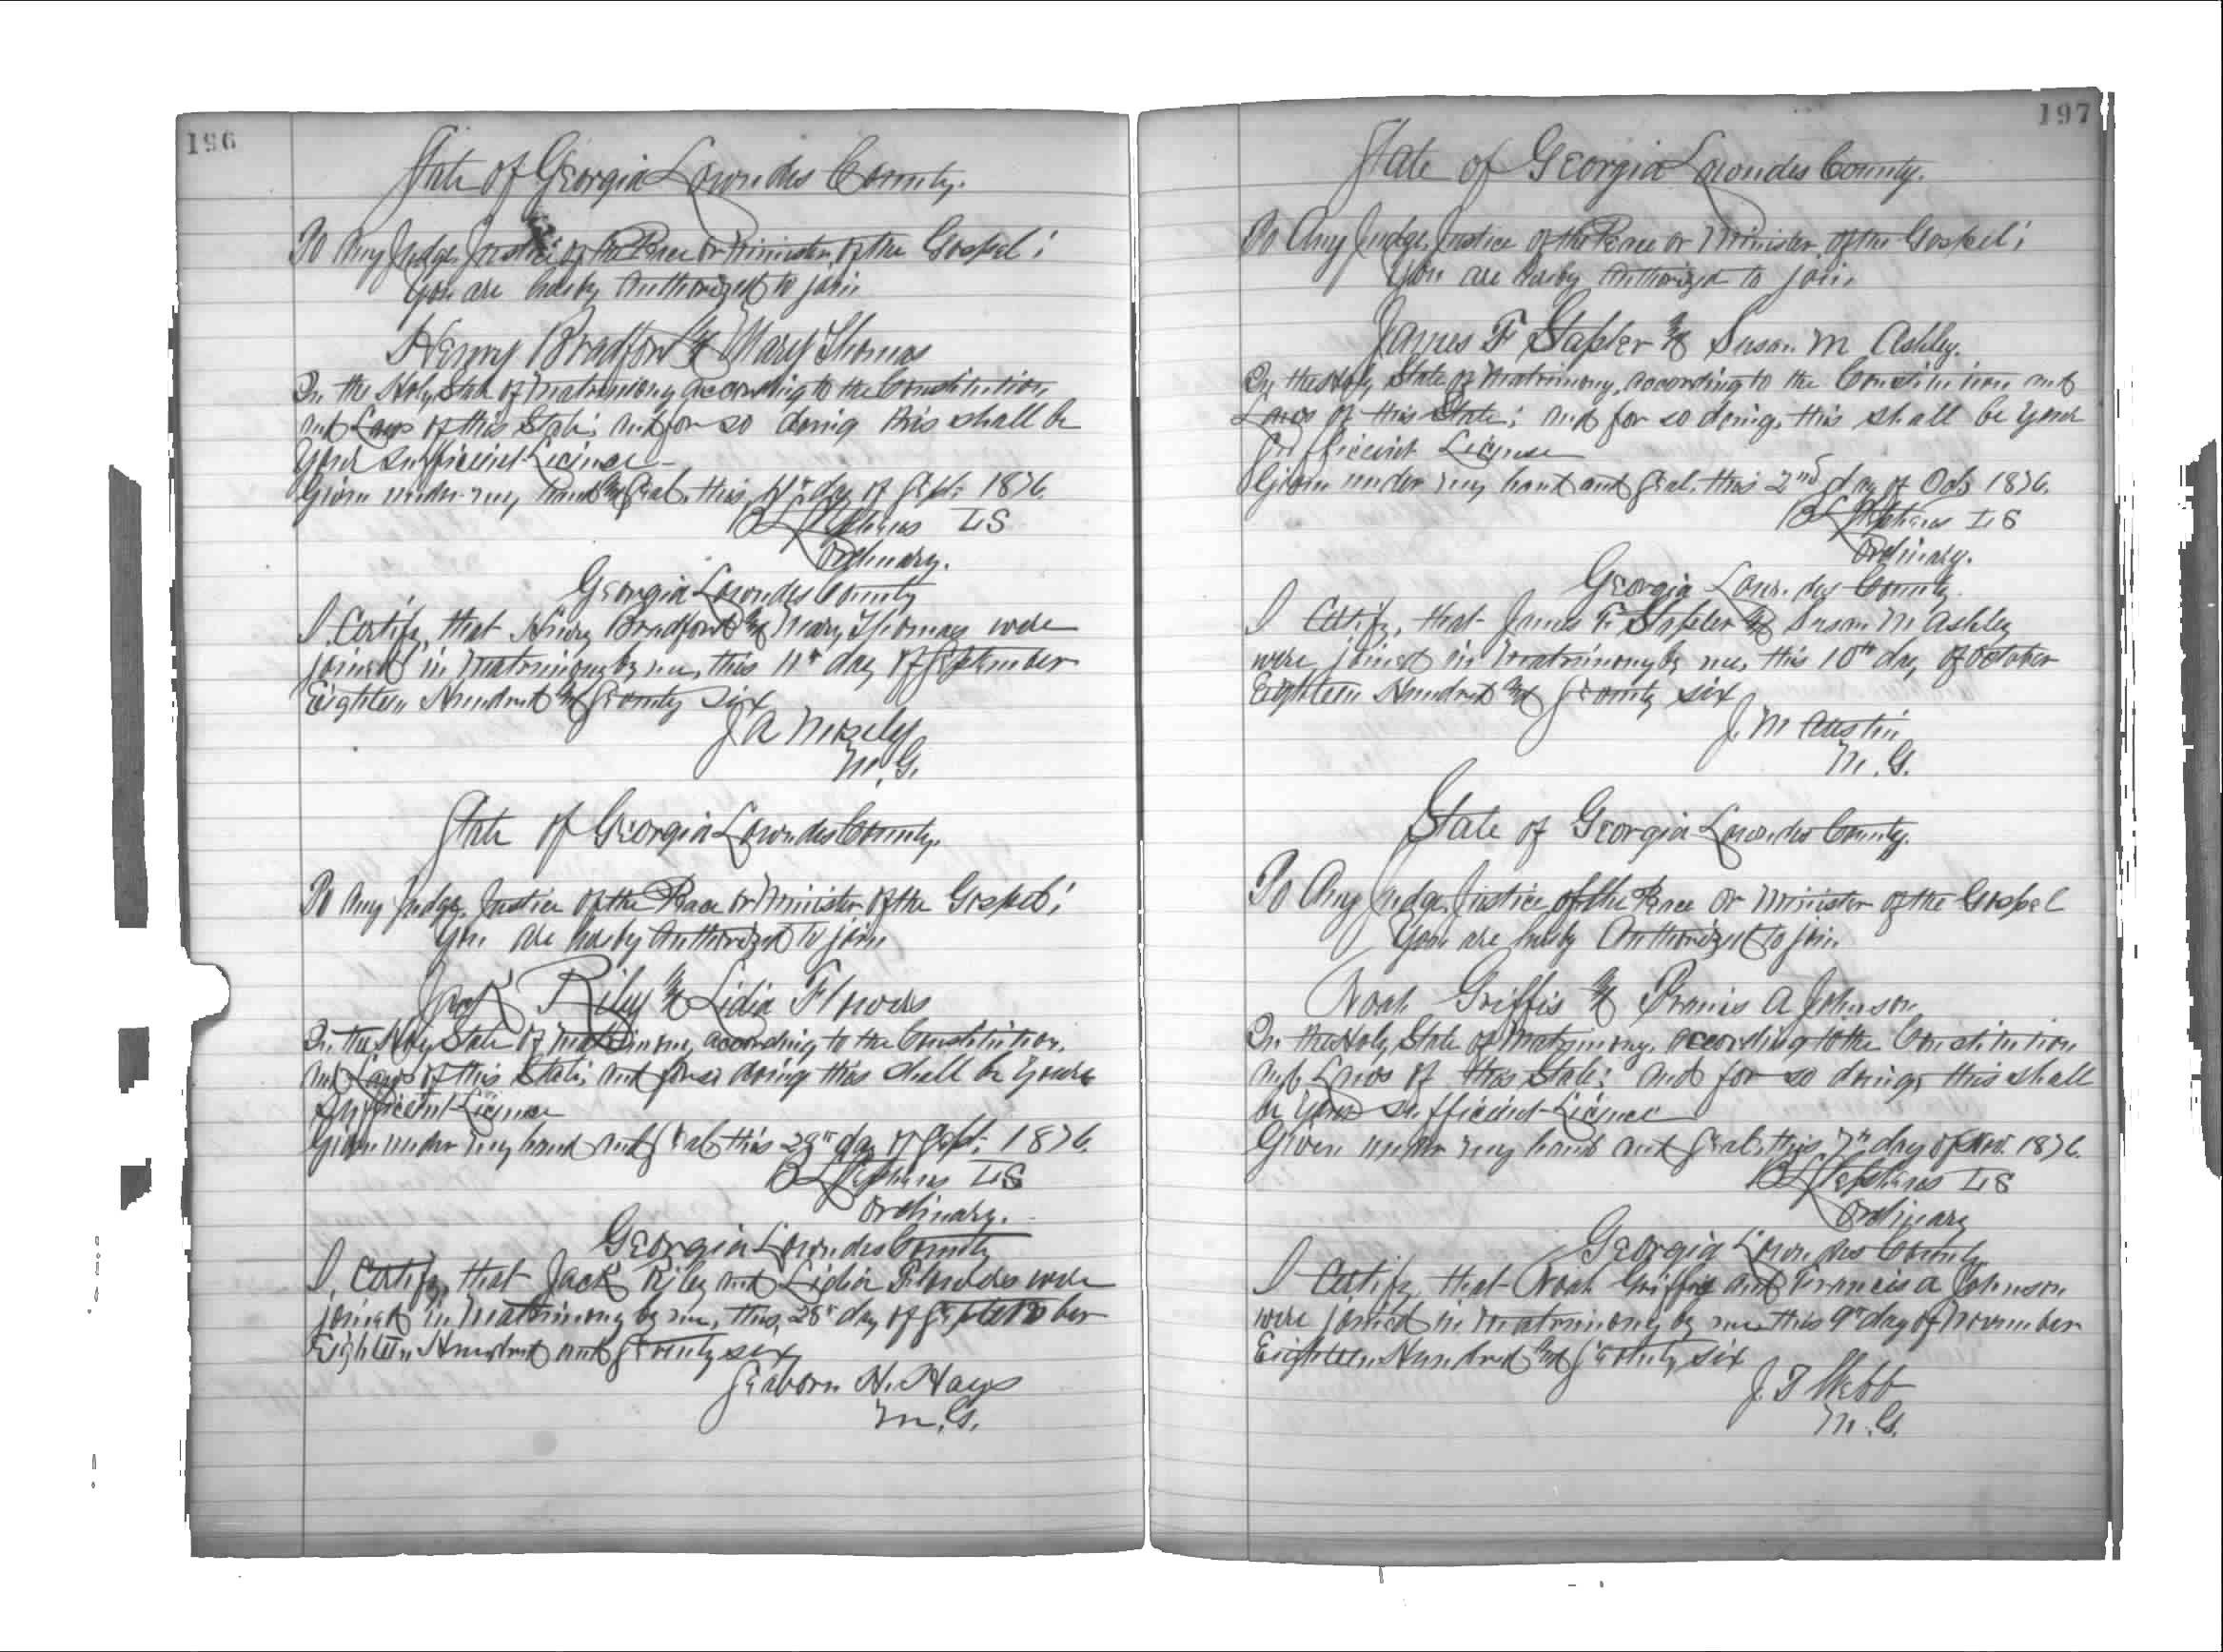 196
State of Georgia Lowndes County.
To Any Judge, Justice of the Peace or Minister of the Gospel;
You are hereby Authorized to join
Henry Bradford & Mary Thomas
In the Holy State of Matrimony according to the Constitution
and Laws of this State; and for so doing this shall be
Your Sufficient License
Given under my hand & Seal, this day of Sept. 1876.
B L Stephens LS
Ordinary.
Georgia Lowndes County
I Certify, that Henry Bradford & Mary Thomas were
joined in Matrimony by me, this 11th day of September
Eighteen Hundred & Seventy six
J A Mosely
M.G.
State of Georgia Lowndes County.
To Any Judge, Justice of the Peace or Minister of the Gospel;
You are hereby Authorized to join
Jack Riley & Lidia Flowers
In the Holy State of Matrimony according to the Constitution,
and Laws of this State; and for so doing this shall be Your
Sufficient License
Given under my hand and Seal this 28th day of Sept. 1876.
B L Stephens LS
Ordinary.
Georgia Lowndes County
I, Certify, that Jack Riley and Lidia were
joined in Matrimony by me, this, 28th day of September
Eighteen Hundred and Seventy six
Seaborn H. Hays
M.G.
197
State of Georgia Lowndes County.
To Any Judge, Justice of the Peace or Minister of the Gospel;
You are hereby Authorized to join
James F Stapler & Susan M Ashley.
In the Holy State of Matrimony, according to the Constitution and
Laws of this State; and for so doing, this shall be Your
Sufficient License
Given under my hand and Seal, this 2nd day of Oct. 1876.
B L Stephens LS
Ordinary.
Georgia Lowndes County.
I Certify, that James F. Stapler & Susan M Ashley
were joined in Matrimony by me, this 10th day of October
Eighteen Hundred & Seventy six
J. M Austin
M.G.
State of Georgia Lowndes County.
To Any Judge, Justice of the Peace or Minister of the Gospel
You are hereby Authorized to join
Noah Griffis & Francis A Johnson
In the Holy State of Matrimony, according to the Constitution
and Laws of this State; and for so doing, this shall
be Your Sufficient License
Given under my hand and Seal, this 7th day of Nov. 1876.
B L Stephens LS
Ordinary
Georgia Lowndes County
I Certify, that Noah Griffis and Francis A Johnson
were joined in Matrimony by me this 9th day of November
Eighteen Hundred & Seventy six
J. T Webb
M.G.